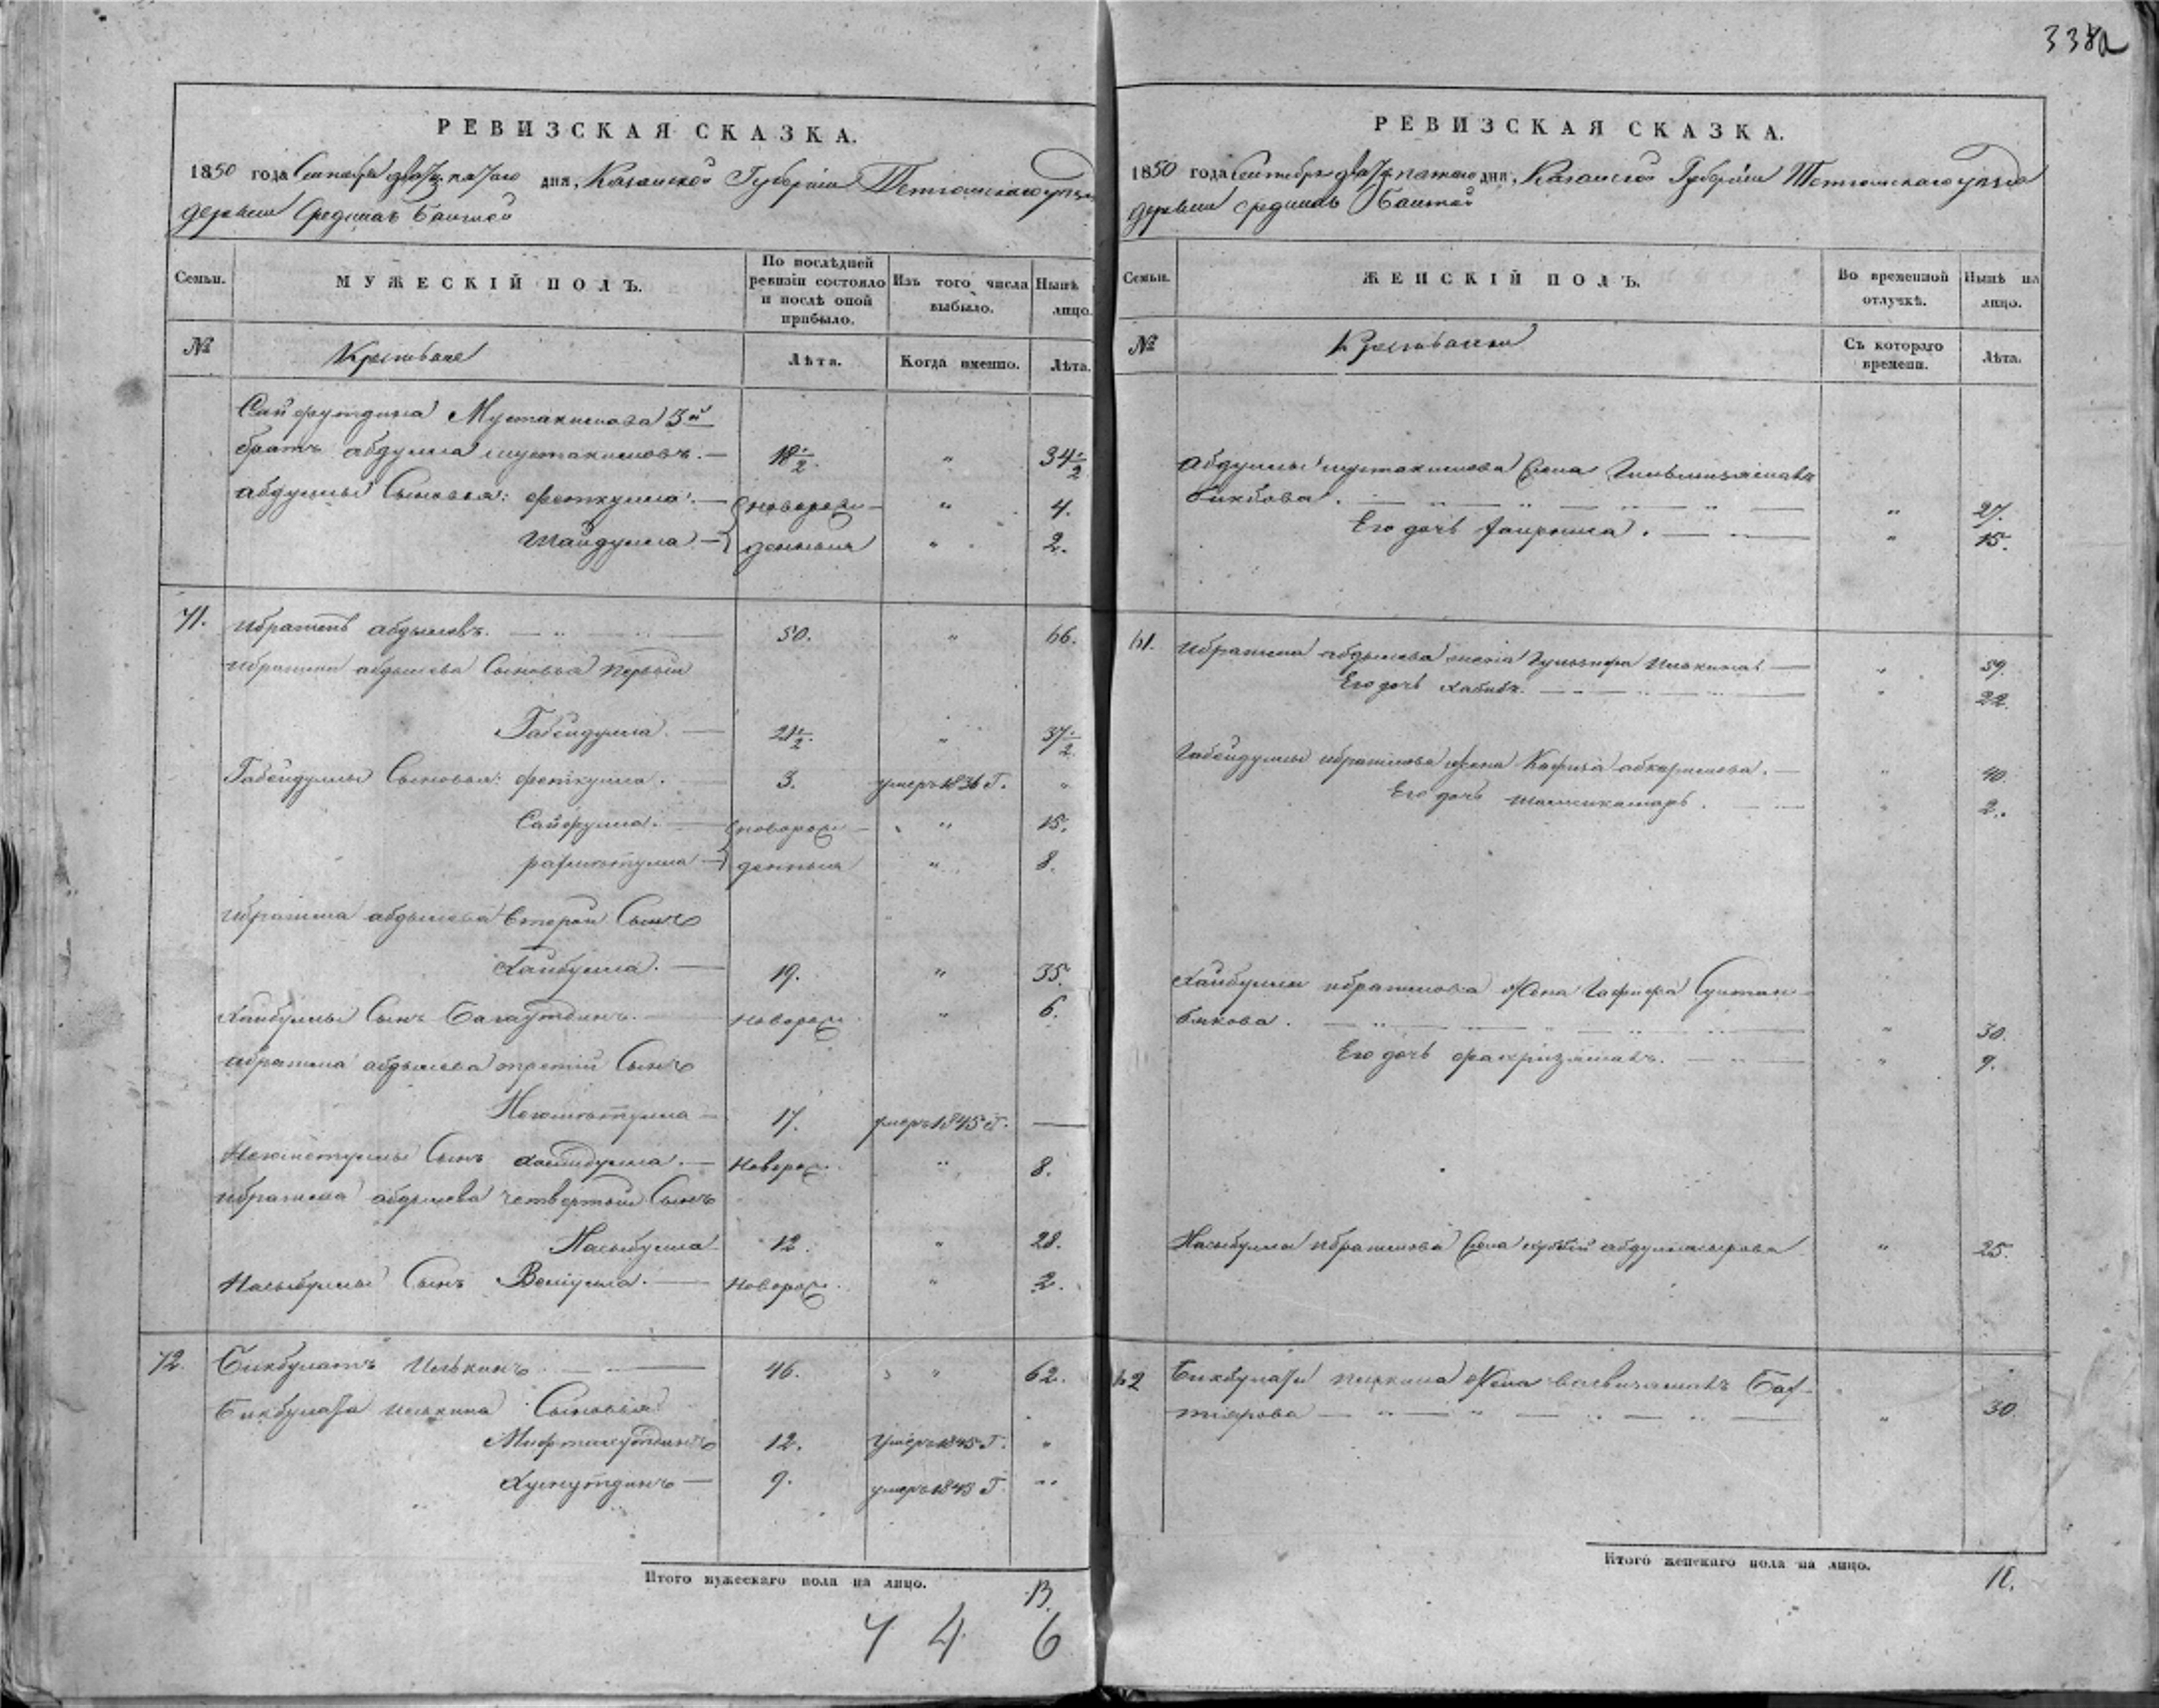 338а
РЕВИЗСКАЯ СКАЗКА.
1850 года Сентября двадцатаго дня, Казанской Губерніи Тетюшскаго уѣзда
деревни Средних Балтаей
Семьи.
МУЖЕСКІЙ ПОЛЪ.
По послѣдней ревизіи состояло и послѣ оной прибыло.
Изъ того числа выбыло.
Нынѣ лицо.
№
Крестьяне
Лѣта.
Когда именно.
Лѣта.
Сайфутдина Мустакимова 3й
братъ абдулла мустакимовъ. — 18½. " 34½
абдуллы Сыновья: фетхулла. — новорож- " 4.
Шайдулла — денныя " 2.
71. Ибрагимъ абдышевъ. 50. " 66.
Ибрагима абдышева Сыновья первый
Габейдулла. — 21½. " 37½.
Габейдуллы Сыновья: фетхулла. 3. умеръ 1836 Г. "
Сайфулла. — новорож- " 15.
рахматулла — денныя " 8.
Ибрагима абдышева второй Сынъ
Хайбулла. — 19. " 35.
Хайбуллы Сынъ Багаутдинъ. новорож. " 6.
Ибрагима абдышева третій Сынъ
Негаметулла — 17. умеръ 1845 Г. —
Негаметуллы Сынъ Хамидулла. — новорож. " 8.
Ибрагима абдышева четвертый Сынъ
Насыбулла 12. " 28.
Насыбуллы Сынъ Велиулла. — новорож. " 2.
72. Бикбулатъ Илькинъ 46. " 62.
Бикбулата Илькина Сыновья
Мифтахутдинъ 12. умеръ 1845 Г. "
Хуснутдинъ — 9. умеръ 1843 Г. "
Итого мужескаго пола на лицо. 13.
7 4 6
РЕВИЗСКАЯ СКАЗКА.
1850 года Сентября двадцатаго дня, Казанской Губерніи Тетюшскаго уѣзда
деревни средних Балтаей
Семьи.
ЖЕНСКІЙ ПОЛЪ.
Во временной отлучкѣ.
Нынѣ на лицо.
№
Крестьянки
Съ котораго времени.
Лѣта.
абдуллы мустакимова жена
бикбова. " 27.
Его дочь " 15.
71. Ибрагима абдышева жена Илькина. — " 59.
Его дочь хабиба. " 22.
Габейдуллы ибрагимова жена Кафиза абкаримова. — " 40.
Его дочь шамсикамаръ. " 2.
Хайбуллы ибрагимова жена Гафифа Султан-
бякова. " 30.
Его дочь фахризямалъ. " 9.
Насыбуллы ибрагимова жена абдулнасырова " 25.
72 Бикбулата илькина жена Бах-
тіярова " 30.
Итого женскаго пола на лицо. 11.